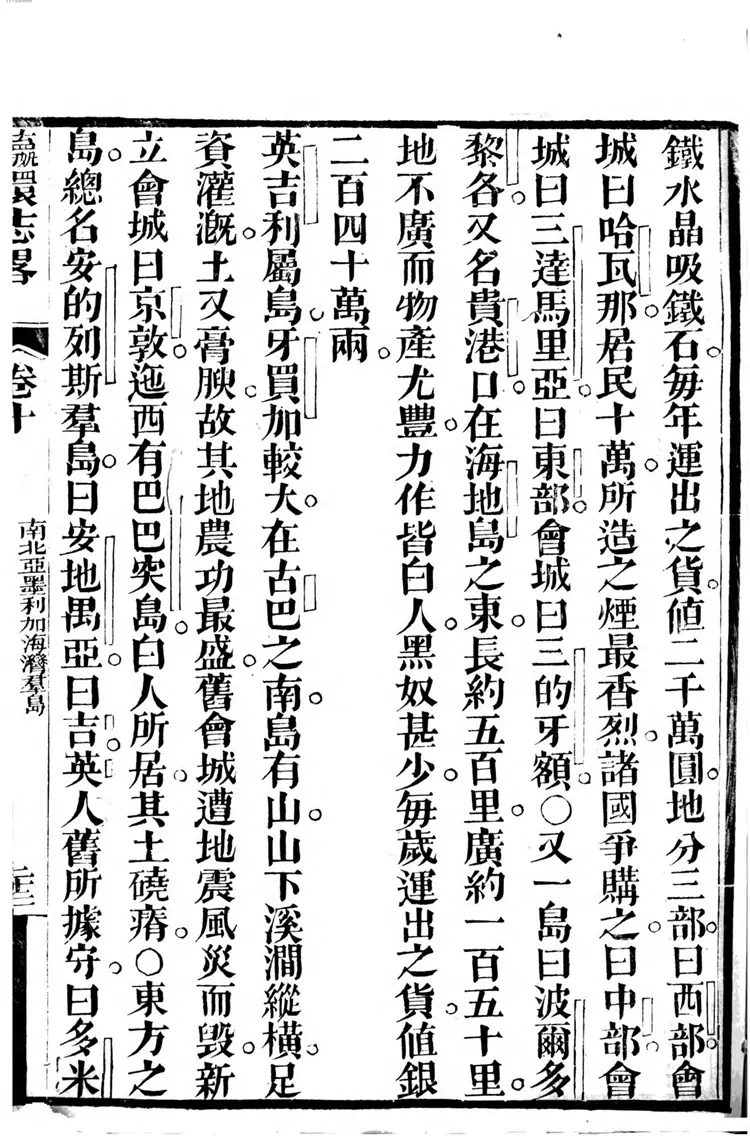 鐵水晶吸鐵石每年運出之貨値二千萬圓地分三部曰西部會
城曰哈瓦那居民十萬所造之煙最香烈諸國爭購之曰中部會
城曰三達馬里亞曰東部會城曰三的牙額○又一島曰波爾多
黎各又名貴港口在海地島之東長約五百里廣約一百五十里
地不廣而物產尤豐力作皆白人黑奴甚少每歲運出之貨値銀
二百四十萬兩
英吉利屬島牙買加較大在古巴之南島有山山下溪澗縱橫足
資灌漑土又膏腴故其地農功最盛舊會城遭地震風災而毀新
立會城曰京敦迤西有巴巴突島白人所居其土磽瘠○東方之
島總名安的列斯羣島曰安地禺亞曰吉英人舊所據守曰多米
瀛寰志畧
卷十
南北亞墨利加海灣羣島